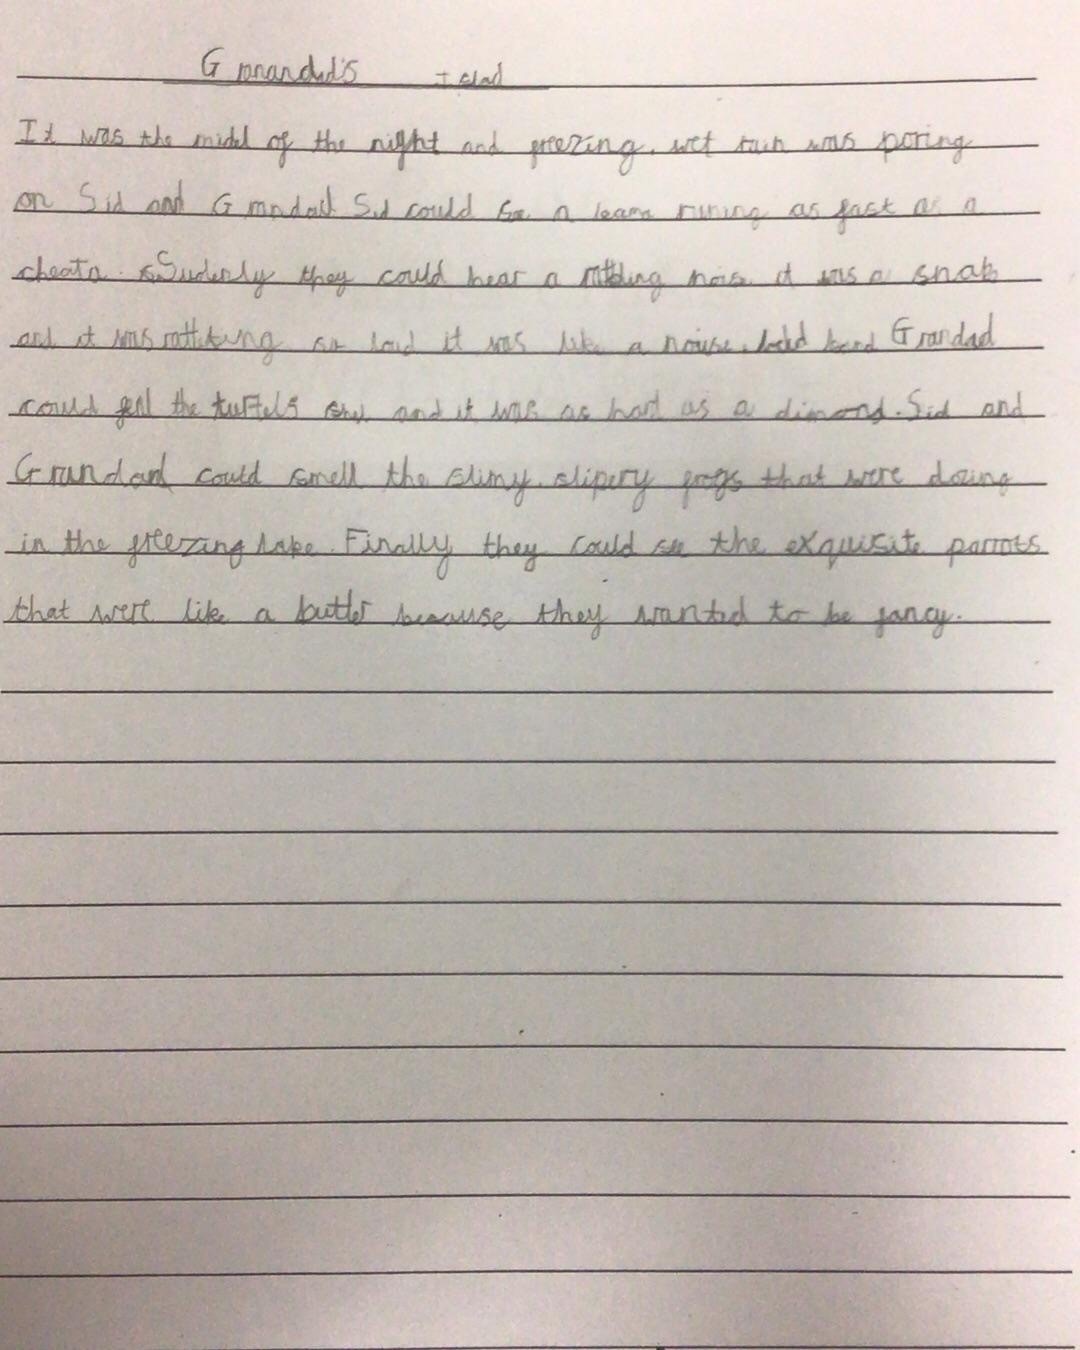 Granandad's Iland
It was the midel of the night and freezing, wet rain was poring
on Sid and Grandad Sid could see a leama runing as fast as a
cheata. Sudenly they could hear a rattling nois it was a snake
and it was rattleing so loud it was like a nouise. Grandad
could feel the turtels shel and it was as hard as a dimond. Sid and
Grandad could smell the slimy, slipery frogs that were dozing
in the freezing lake. Finally they could see the exquisite parrots
that were like a butler because they wanted to be fancy.